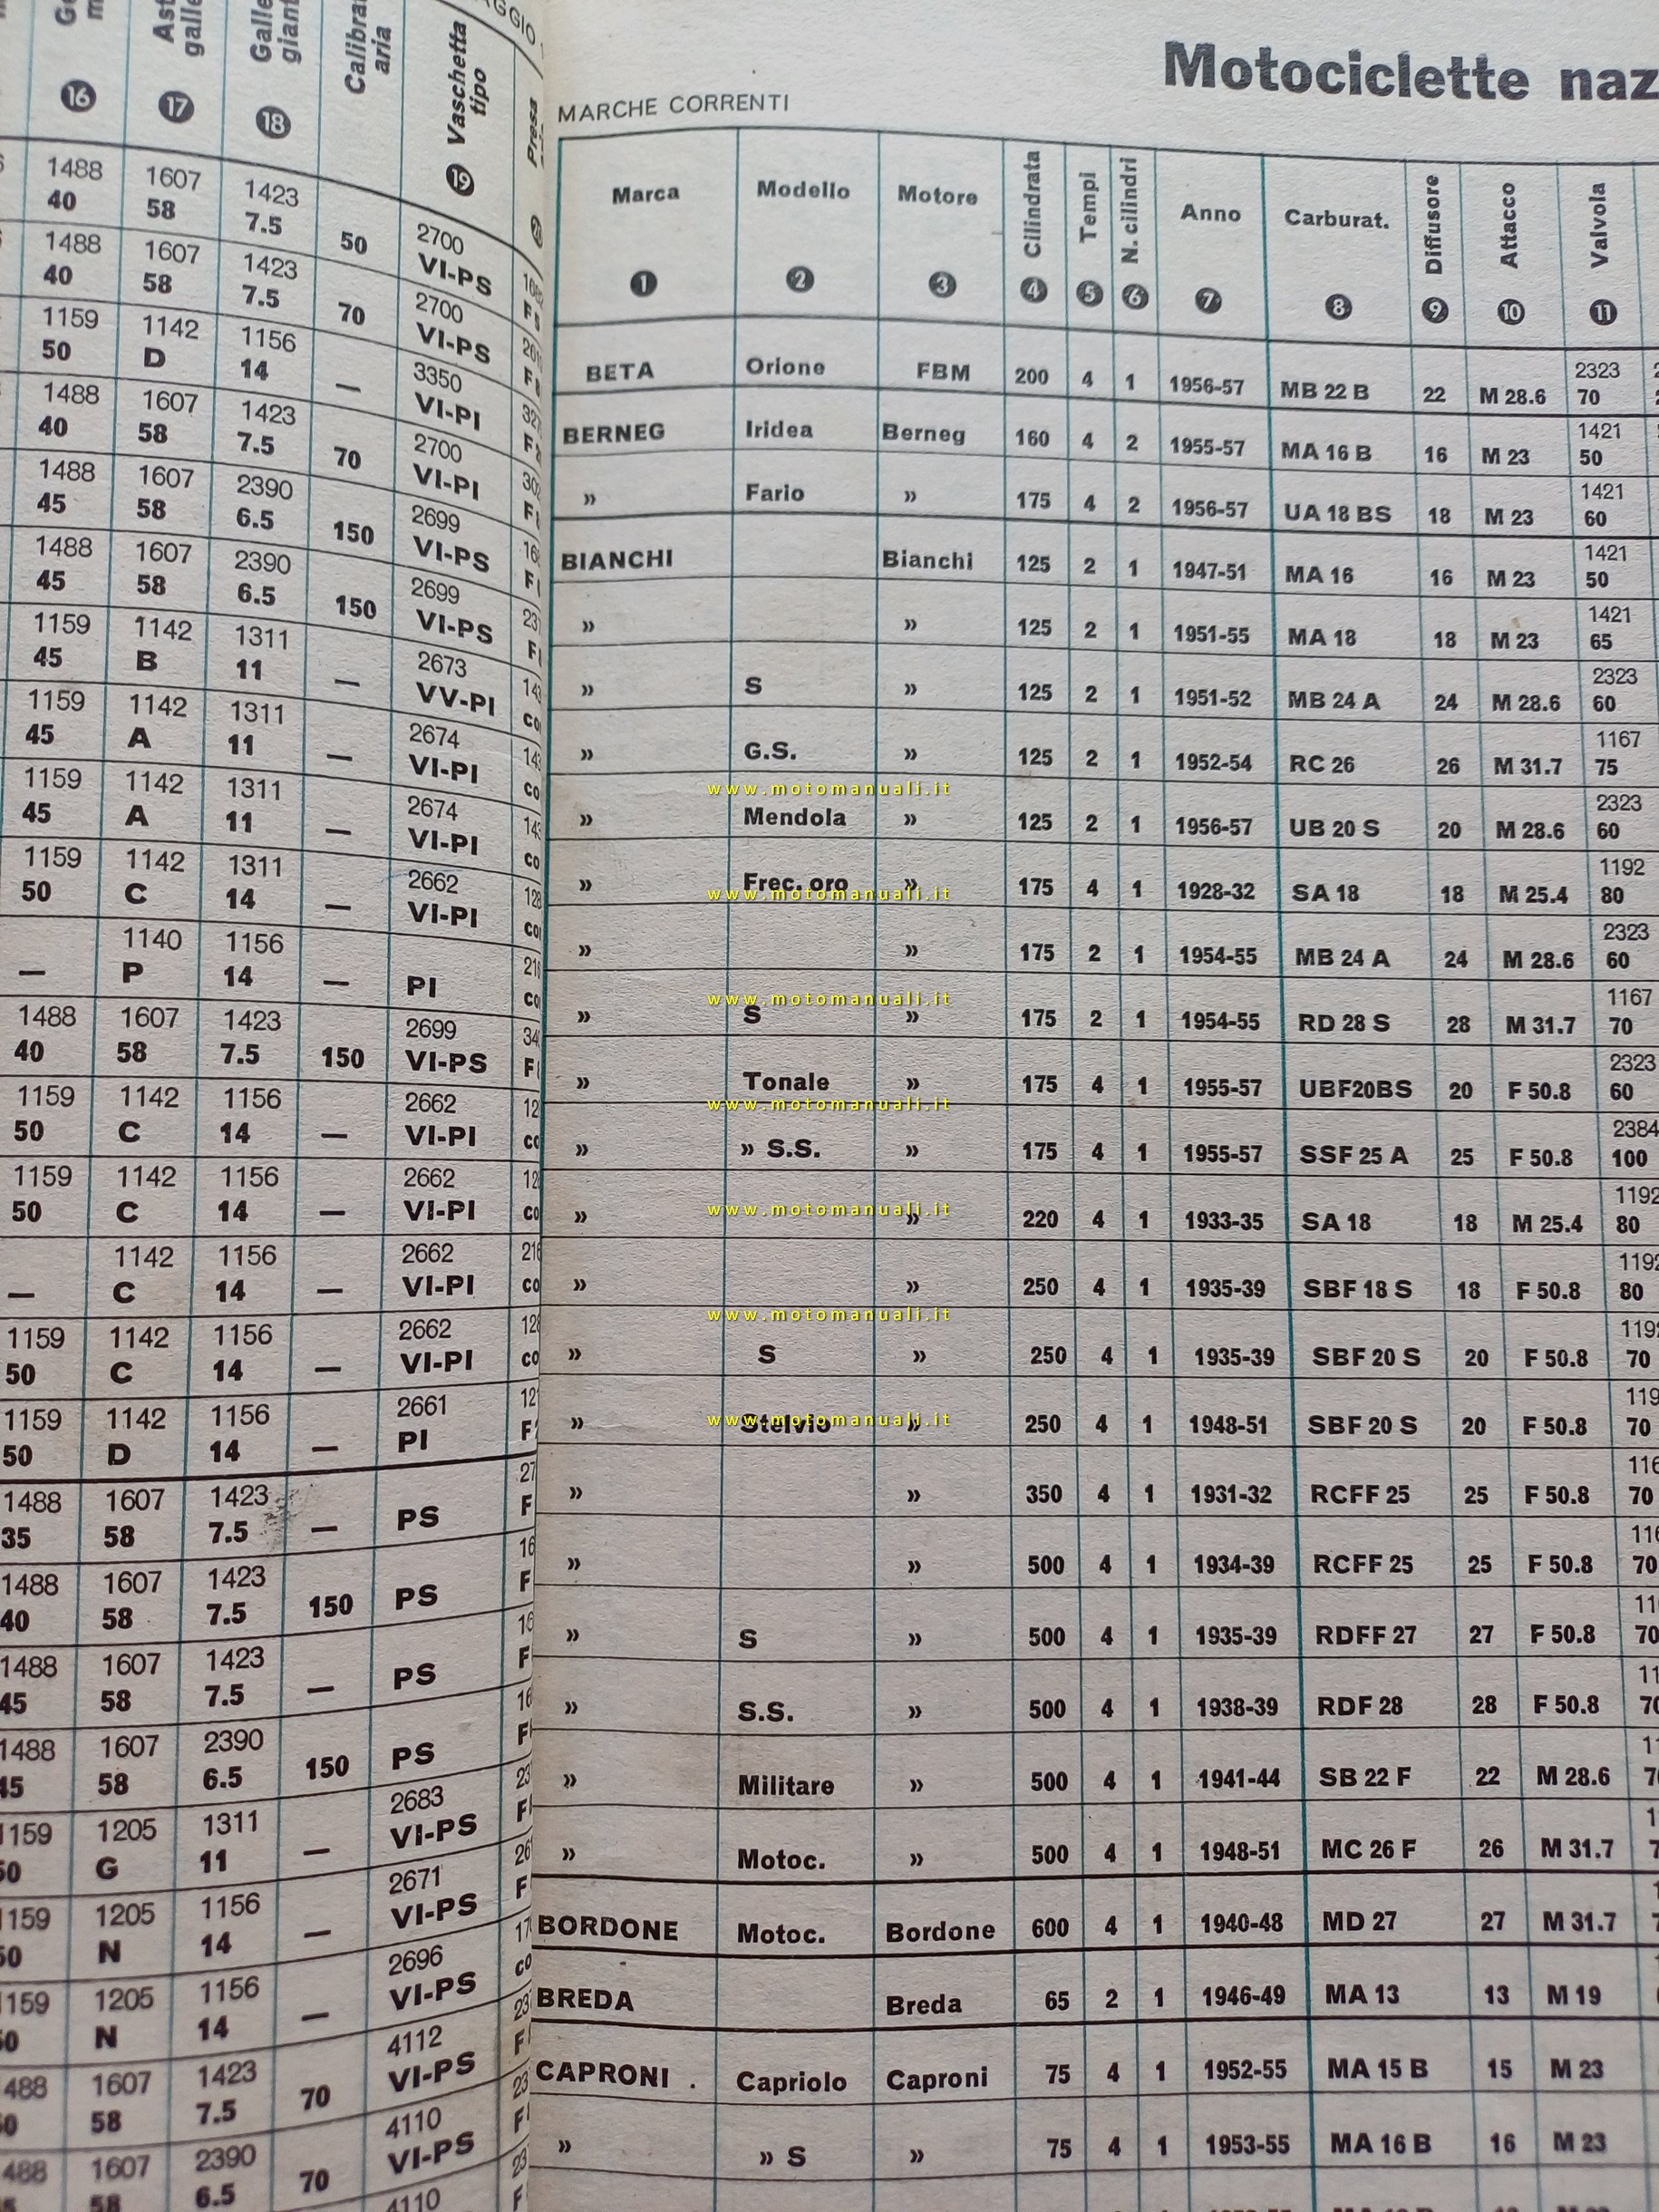 16
17
18
Calibra
aria
19 Vaschetta
tipo
Presa
1488 1607 1423 2700
40 58 7.5 50 VI-PS
1488 1607 1423 2700
40 58 7.5 70 VI-PS
1159 1142 1156 3350
50 D 14 — VI-PI
1488 1607 1423 2700
40 58 7.5 70 VI-PI
1488 1607 2390 2699
45 58 6.5 150 VI-PS
1488 1607 2390 2699
45 58 6.5 150 VI-PS
1159 1142 1311 2673
45 B 11 — VV-PI
1159 1142 1311 2674
45 A 11 — VI-PI
1159 1142 1311 2674
45 A 11 — VI-PI
1159 1142 1311 2662
50 C 14 — VI-PI
1140 1156
— P 14 — PI
1488 1607 1423 2699
40 58 7.5 150 VI-PS
1159 1142 1156 2662
50 C 14 — VI-PI
1159 1142 1156 2662
50 C 14 — VI-PI
1142 1156 2662
— C 14 — VI-PI
1159 1142 1156 2662
50 C 14 — VI-PI
1159 1142 1156 2661
50 D 14 — PI
1488 1607 1423
35 58 7.5 — PS
1488 1607 1423
40 58 7.5 150 PS
1488 1607 1423
45 58 7.5 — PS
1488 1607 2390
45 58 6.5 150 PS
1159 1205 1311 2683
50 G 11 — VI-PS
1159 1205 1156 2671
50 N 14 — VI-PS
1159 1205 1156 2696
50 N 14 — VI-PS
488 1607 1423 4112
58 7.5 70 VI-PS
488 1607 2390 4110
58 6.5 70 VI-PS
4110
Motociclette naz
MARCHE CORRENTI
Marca Modello Motore Cilindrata Tempi N. cilindri Anno Carburat. Diffusore Attacco Valvola
1 2 3 4 5 6 7 8 9 10 11
BETA Orione FBM 200 4 1 1956-57 MB 22 B 22 M 28.6 2323 70
BERNEG Iridea Berneg 160 4 2 1955-57 MA 16 B 16 M 23 1421 50
» Fario » 175 4 2 1956-57 UA 18 BS 18 M 23 1421 60
BIANCHI Bianchi 125 2 1 1947-51 MA 16 16 M 23 1421 50
» » 125 2 1 1951-55 MA 18 18 M 23 1421 65
» S » 125 2 1 1951-52 MB 24 A 24 M 28.6 2323 60
» G.S. » 125 2 1 1952-54 RC 26 26 M 31.7 1167 75
www.motomanuali.it
» Mendola » 125 2 1 1956-57 UB 20 S 20 M 28.6 2323 60
» Frec. oro » 175 4 1 1928-32 SA 18 18 M 25.4 1192 80
www.motomanuali.it
» » 175 2 1 1954-55 MB 24 A 24 M 28.6 2323 60
www.motomanuali.it
» S » 175 2 1 1954-55 RD 28 S 28 M 31.7 1167 70
» Tonale » 175 4 1 1955-57 UBF20BS 20 F 50.8 2323 60
www.motomanuali.it
» » S.S. » 175 4 1 1955-57 SSF 25 A 25 F 50.8 2384 100
www.motomanuali.it
» » 220 4 1 1933-35 SA 18 18 M 25.4 1192 80
» » 250 4 1 1935-39 SBF 18 S 18 F 50.8 1192 80
www.motomanuali.it
» S » 250 4 1 1935-39 SBF 20 S 20 F 50.8 1192 70
www.motomanuali.it
» Stelvio » 250 4 1 1948-51 SBF 20 S 20 F 50.8 119 70
» » 350 4 1 1931-32 RCFF 25 25 F 50.8 116 70
» » 500 4 1 1934-39 RCFF 25 25 F 50.8 116 70
» S » 500 4 1 1935-39 RDFF 27 27 F 50.8 70
» S.S. » 500 4 1 1938-39 RDF 28 28 F 50.8
» Militare » 500 4 1 1941-44 SB 22 F 22 M 28.6
» Motoc. » 500 4 1 1948-51 MC 26 F 26 M 31.7
BORDONE Motoc. Bordone 600 4 1 1940-48 MD 27 27 M 31.7
BREDA Breda 65 2 1 1946-49 MA 13 13 M 19
CAPRONI . Capriolo Caproni 75 4 1 1952-55 MA 15 B 15 M 23
» » S » 75 4 1 1953-55 MA 16 B 16 M 23